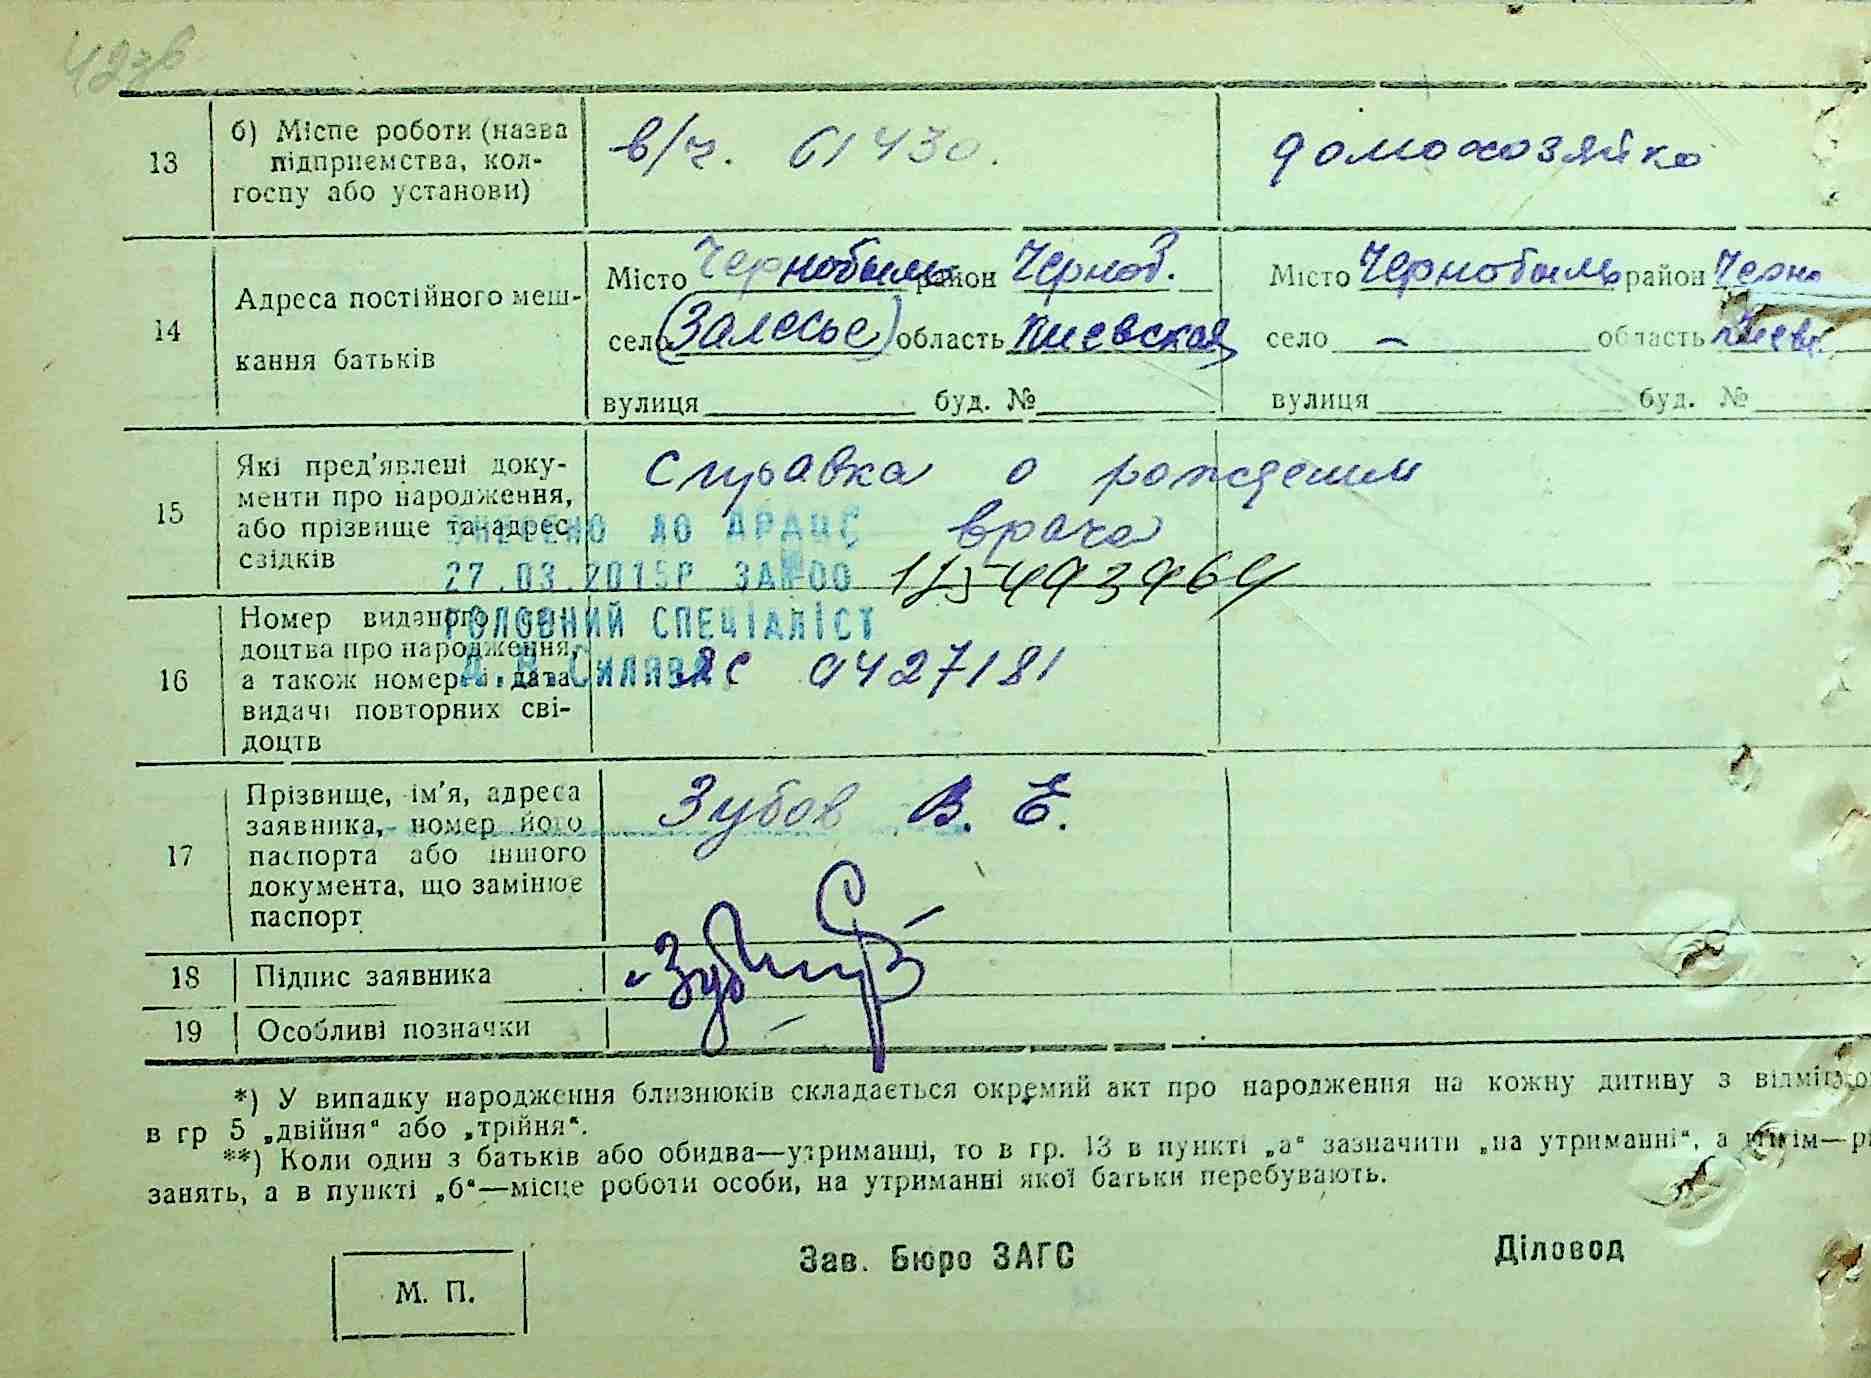 13 б) Місце роботи (назва в/ч. 61430. домохозяйка
підприємства, кол-
госпу або установи)
14 Адреса постійного меш-
кання батьків
Місто Чернобыль район Черноб. Місто Чернобыль район Черно
село (Залесье) область Киевская село — область Киевс.
вулиця буд. № вулиця буд. №
15 Які пред'явлені доку-
менти про народження,
або прізвище та адрес
свідків
Справка о рождении
врача
ВНЕСЕНО ДО ДРАЦС
27.03.2015Р ЗА №00
ГОЛОВНИЙ СПЕЦІАЛІСТ
16 Номер виданого сві-
доцтва про народження,
а також номер і дата
видачі повторних сві-
доцтв
0427181
17 Прізвище, ім'я, адреса
заявника, номер його
паспорта або іншого
документа, що замінює
паспорт
Зубов В. Е.
18 Підпис заявника
19 Особливі позначки —
*) У випадку народження близнюків складається окремий акт про народження на кожну дитину з
в гр 5 „двійня“ або „трійня“.
**) Коли один з батьків або обидва—утриманці, то в гр. 13 в пункті „а“ зазначити „на утриманні“, а
занять, а в пункті „б“—місце роботи особи, на утриманні якої батьки перебувають.
М. П.
Зав. Бюро ЗАГС
Діловод